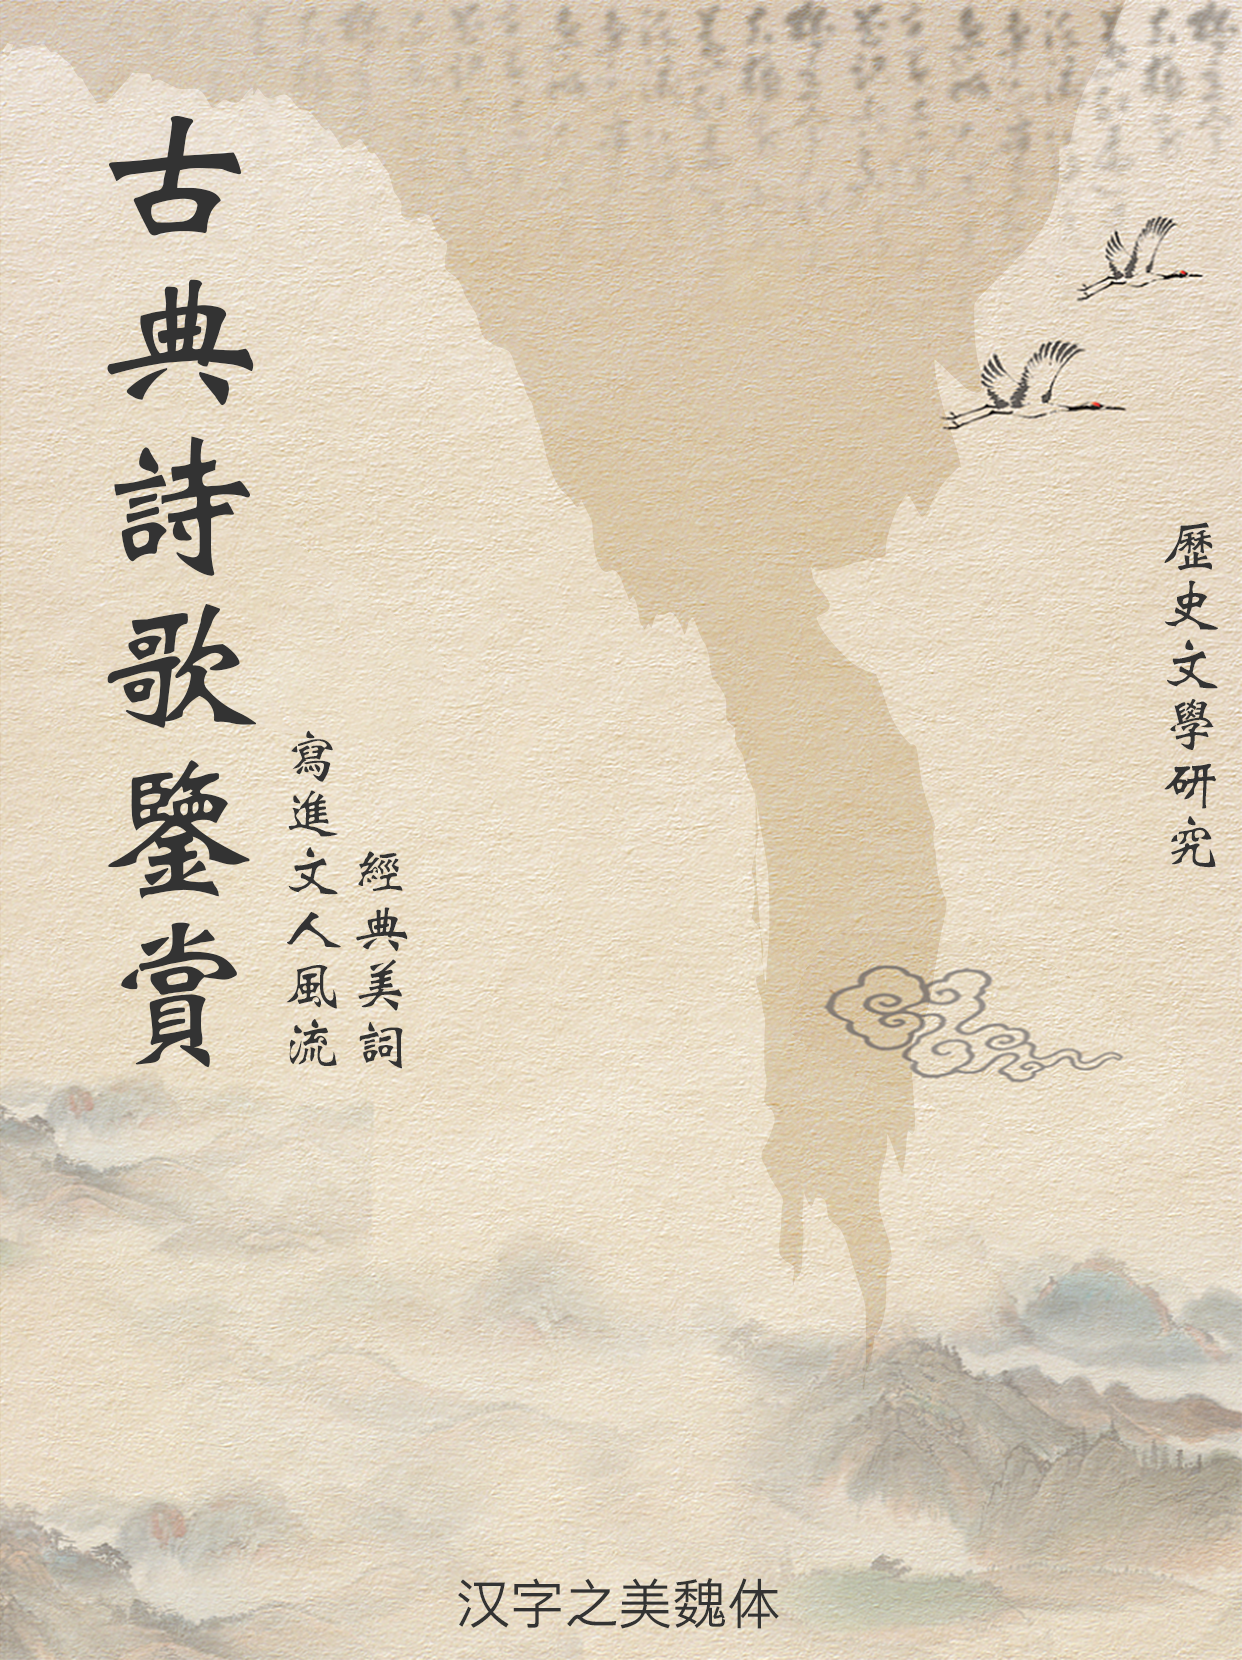 古典詩歌鑒賞
寫進文人風流
經典美詞
歷史文學研究
汉字之美魏体